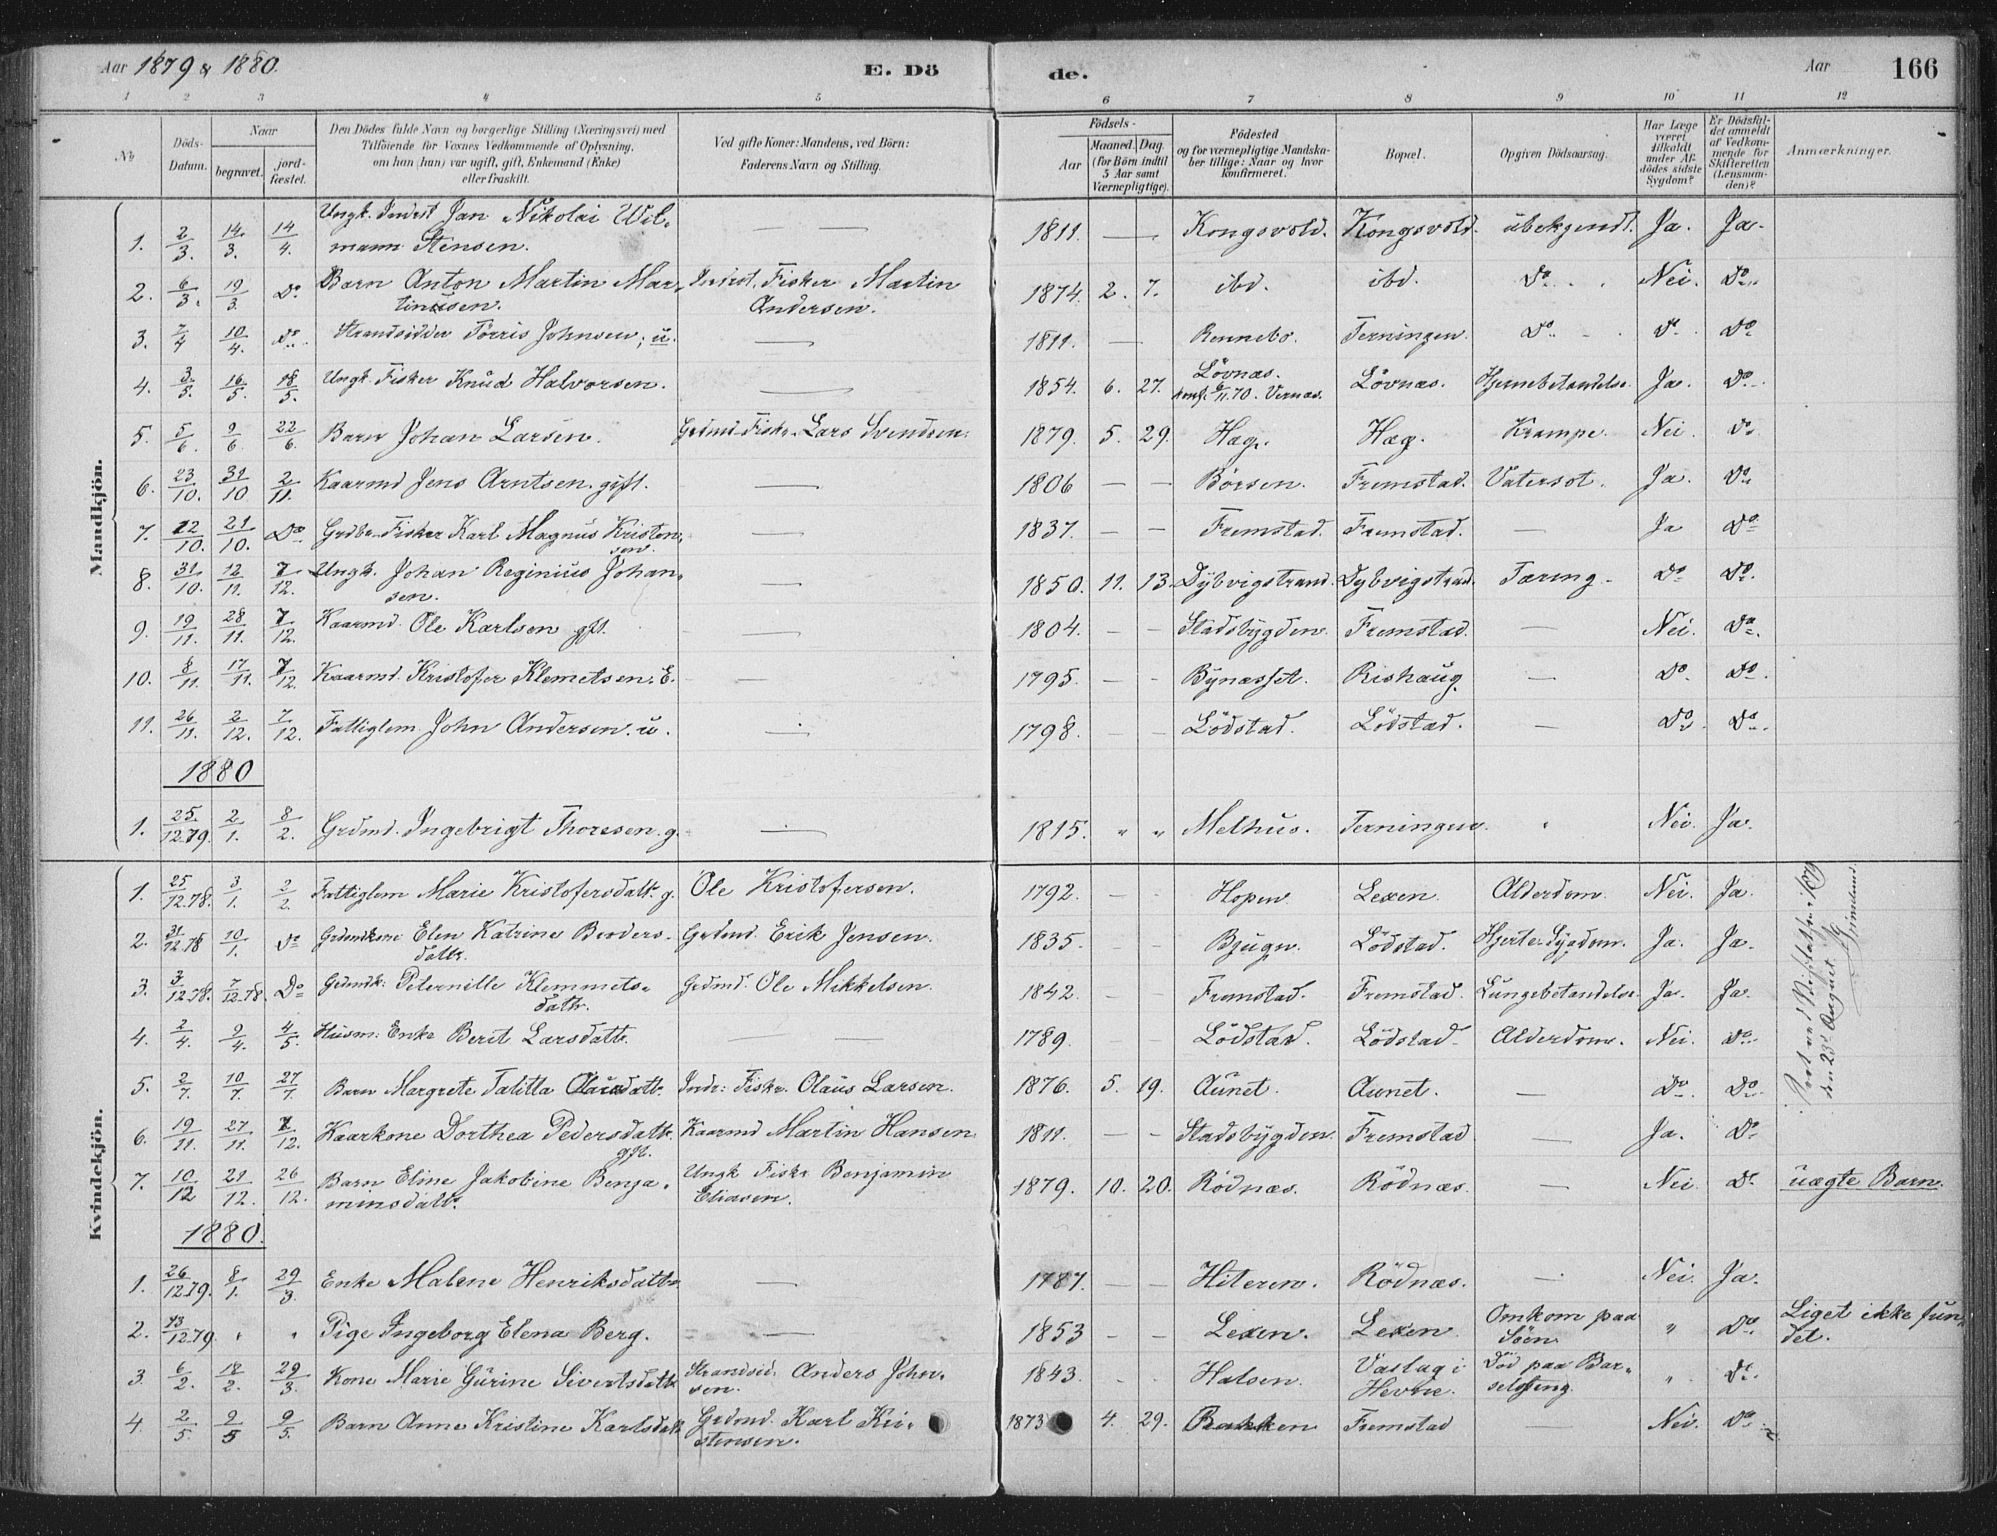 Aar 1879 & 1880. E. Dö de. Aar 166
1 2 3 4 5 6 7 8 9 10 11 12
No Döds-Datum. Naar begravet. jord-fæstet. Den Dödes fulde Navn og borgerlige Stilling (Næringsvei) med Tilföiende for Voxnes Vedkommende af Oplysning, om han (hun) var ugift, gift, Enkemand (Enke) eller fraskilt. Ved gifte Koner: Mandens, ved Börn: Faderens Navn og Stilling. Födsels- Aar Maaned. Dag. (for Börn indtil 5 Aar samt Værnepligtige). Födested og for værnepligtige Mandskaber tillige: Naar og hvor konfirmeret. Bopæl. Opgiven Dödsaarsag. Har Læge været tilkaldt under Afdödes sidste Sygdom? Er Dödsfaldet anmeldt af Vedkommende for Skifteretten (Lensmanden)? Anmærkninger.
Mandkjön.
1. 2/3. 14/3. 14/4. Ungk. Inderst Jan Nikolai Wilmann Stensen. — 1811. — Kongsvold. Kongsvold. ubekjendt. Ja. Ja.
2. 6/3. 19/3. Do Barn Anton Martin Martinusen. Inderst. Fisker Martin Andersen. 1874. 2. 7. ibd. ibd. Do Nei. Do
3. 7/4 10/4. Do Strandsidder Torris Johnsen, u. — 1811. — Rennebo. Terningen. Do Do Do
4. 3/5. 16/5. 18/5. Ungk. Fisker Knud Halvorsen. — 1854. 6. 27. Lövnæs. konf. 6/11.70. Vernæs. Lövnæs. Hjernebetændelse. Ja. Do
5. 5/6. 9/6. 22/6. Barn Johan Larsen. Grdmd. Fisker Lars Svendsen. 1879. 5. 29. Hæg. Hæg. Krampe. Nei. Do
6. 23/10. 31/10 2/11. Kaarmd Jens Arntsen. gift. — 1806 — — Börsen. Fremstad. Vatersot. Ja. Do
7. 12/10. 21/10. Do Grdbr. Fisker Karl Magnus Kristensen. — 1837. — — Fremstad. Fremstad. — Ja Do
8. 31/10. 12/11. 7/12. Ungk. Johan Reginius Johansen. — 1850. 11. 13. Dybvigstrand. Dybvigstrand. Tæring. Do Do
9. 19/11. 28/11. 7/12. Kaarmd. Ole Karlsen gft. — 1804. — — Stadsbygden. Fremstad. — Nei. Do
10. 8/11. 17/11. 7/12. Kaarmd. Kristofer Klemetsen. E. — 1795. — — Bynæsset. Rishaug. — Do Do
11. 26/11. 2/12. 7/12. Fattiglem John Andersen. u. — 1798. — — Lödstad. Lödstad. — Do Do
1880
1. 25/12.79. 2/1. 8/2. Grdmd. Ingebrigt Thoresen. g. — 1815. " " Melhus. Terningen. " Nei. Ja.
Kvindekjön.
1. 25/12.78. 3/1. 2/2. Fattiglem Marie Kristofersdatt. g. Ole Kristofersen. 1792. — — Hopen Lexen Alderdom. Nei. Ja.
2. 31/12.78 10/1. Do Grdmdkone Elen Katrine Brodersdatt. Grdmd. Erik Jensen. 1835. — — Bjugn. Lödstad. Hjerte-Sygdom. Ja. Ja.
3. 3/12.78. 7/12.78 Do Grdmdk. Peternille Klemmetsdatt. Grdmd. Ole Mikkelsen. 1842. — — Fremstad. Fremstad. Lungebetændelse. Ja. Ja.
4. 2/4. 9/4. 4/5. Husm. Enke Berit Larsdatt. — — 1789. — — Lödstad. Lödstad. Alderdom. Nei. Do
5. 2/7. 10/7. 27/7. Barn Margrete Talitta Olausdatt. Indr. Fiskr. Olaus Larsen. 1876. 5. 19. Aunet. Aunet. — Do Do
6. 19/11. 27/11. 7/12. Kaarkone Dorthea Pedersdatt. gft. Kaarmd Martin Hansen 1811. — — Stadsbygden. Fremstad — Ja. Do
7. 10/12 21/12. 26/12. Barn Eline Jakobine Benjaminsdatt. Ungk Fiskr Benjamin Eliasen. 1879. 10. 20. Rödnæs. Rödnæs. — Nei Do uægte Barn.
den 23d August.
1880.
1. 26/12.79. 8/1. 29/3. Enke Malene Henriksdatt. — 1787. — — Hiteren. Rödnæs. — Nei. Ja.
2. 13/12.79. " " Pige Ingeborg Elena Berg. — 1853 — — Lexen. Lexen Omkom paa Söen " Do Liget ikke fundet.
3. 6/2. 18/2. 29/3. Kone Marie Gurine Sivertsdatt. Strandsid. Anders Johnsen. 1843. — — Halsen. Vaslag i Hevne. Död paa Barselseng. " Do
4. 2/5. 9/5 9/5. Barn Anne Kristine Karlsdatt. Grdmd. Karl Kristensen. 1873 4. 29. Bakken Fremstad — Nei. Do